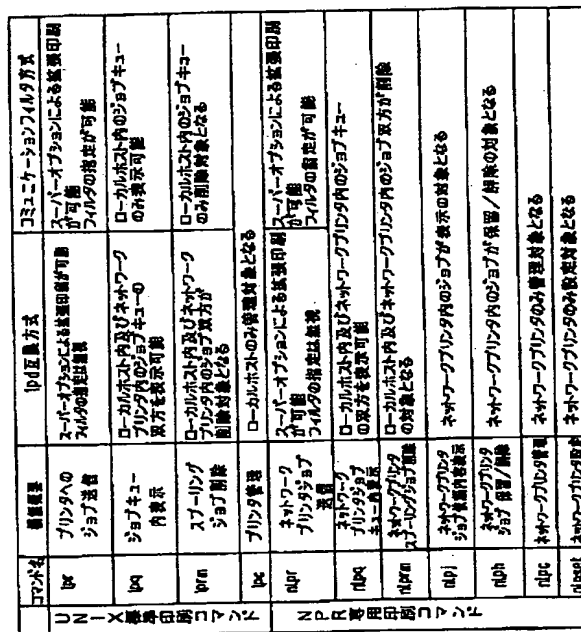 コマンド名 機能概要 lpd互換方式 コミュニケーションフィルタ方式
UNIX標準印刷コマンド
lpr
プリンタへの
ジョブ送信
スーパーオプションによる拡張印刷が可能
フィルタの指定は無視
スーパーオプションによる拡張印刷
が可能
フィルタの指定が可能
lpq
ジョブキュー
内表示
ローカルホスト内及びネットワーク
プリンタ内のジョブキューの
双方を表示可能
ローカルホスト内のジョブキュー
のみ表示可能
lprm
スプーリング
ジョブ削除
ローカルホスト内及びネットワーク
プリンタ内のジョブ双方が
削除対象となる
ローカルホスト内のジョブキュー
のみ削除対象となる
lpc
プリンタ管理
ローカルホストのみ管理対象となる
NPR専用印刷コマンド
nlpr
ネットワーク
プリンタジョブ
送信
スーパーオプションによる拡張印刷
が可能
フィルタの指定は無視
スーパーオプションによる拡張印刷
が可能
フィルタの指定が可能
nlpq
ネットワーク
プリンタジョブ
キュー内表示
ローカルホスト内及びネットワークプリンタ内のジョブキュー
の双方を表示可能
nlprm
ネットワークプリンタ
スプーリングジョブ削除
ローカルホスト内及びネットワークプリンタ内のジョブ双方が削除
の対象となる
nlpj
ネットワークプリンタ
ジョブ 内容表示
ネットワークプリンタ内のジョブが表示の対象となる
nlph
ネットワークプリンタ
ジョブ 保留/解除
ネットワークプリンタ内のジョブが保留/解除の対象となる
nlpc
ネットワークプリンタ管理
ネットワークプリンタのみ管理対象となる
nlpset
ネットワークプリンタ設定
ネットワークプリンタのみ設定対象となる